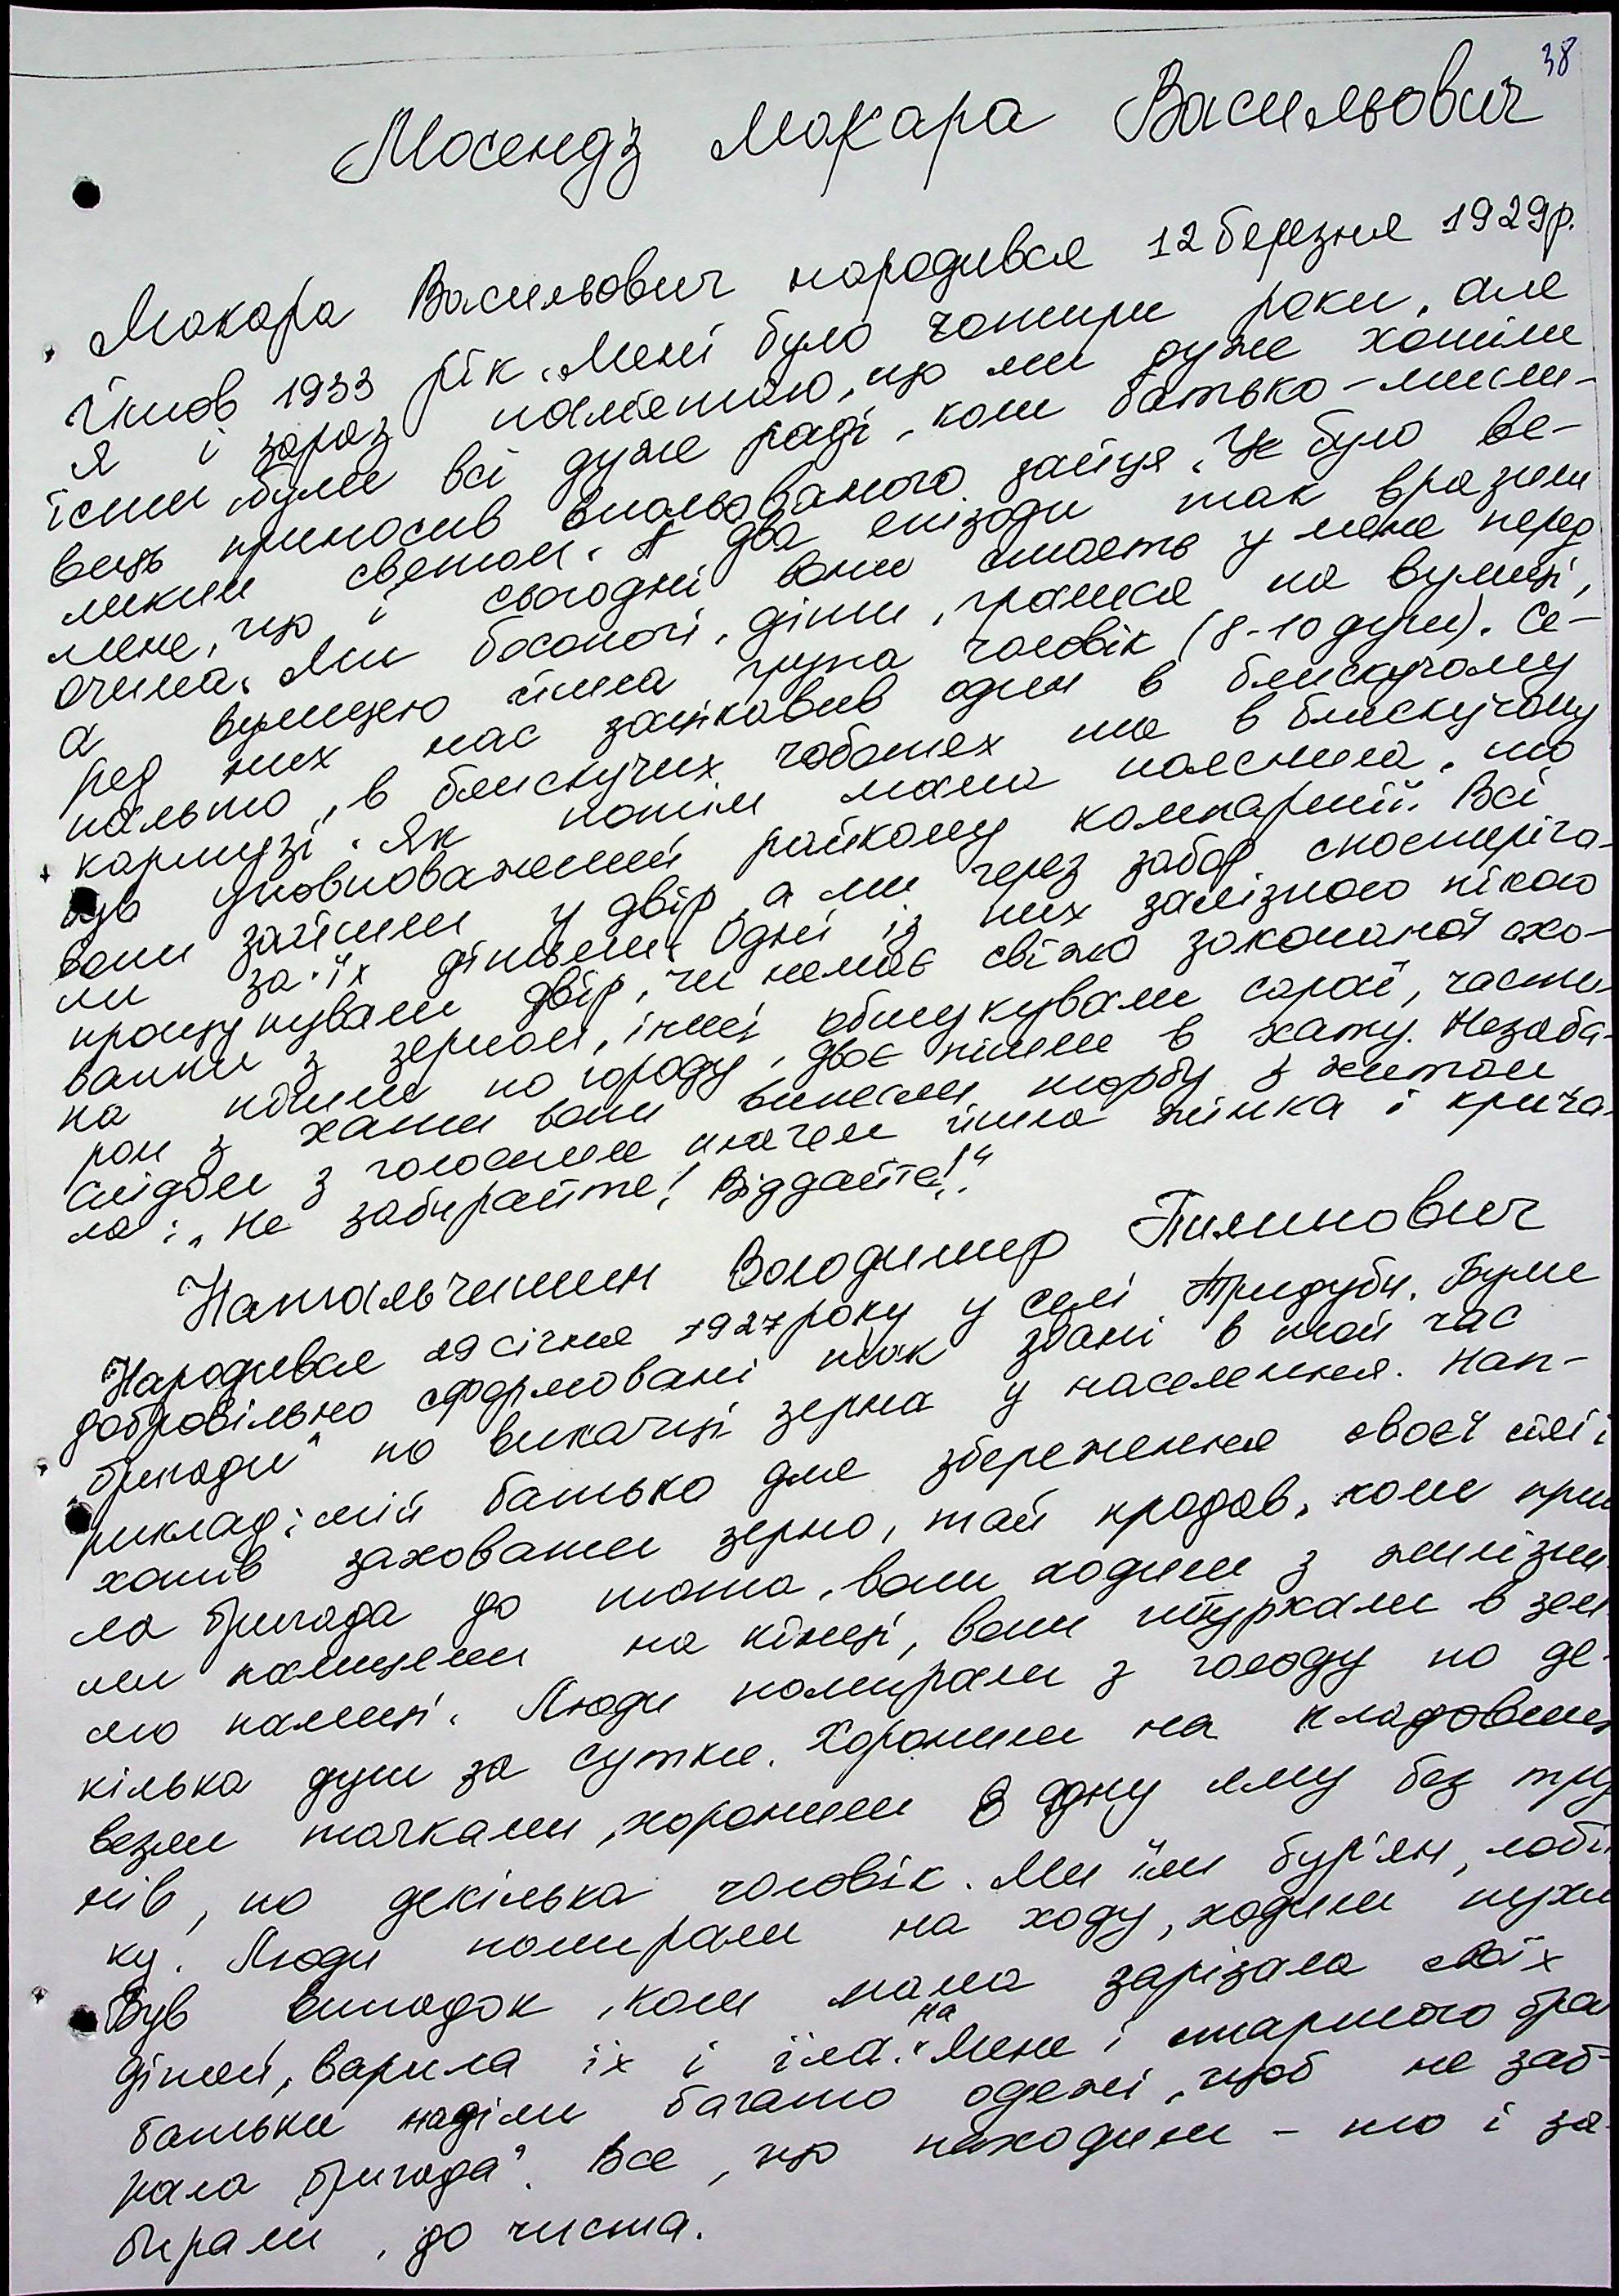 38
Мосендз Макара Васильович
Макара Васильович народився 12 березня 1929р.
Йшов 1933 рік. Мені було чотири роки, але
я і зараз памʼятаю, що ми дуже хотіли
їсти, були всі дуже раді, коли батько-мисли-
вець приносив впольованого зайця. Це було ве-
ликим святом. А два епізоди так вразили
мене, що і сьогодні вони стоять у мене перед
очима. Ми босоногі, діти, грались на вулиці,
а вулицею йшла група чоловік (8-10 душ). Се-
ред них нас зацікавив один в блискучому
пальто, в блискучих чоботях та в блискучому
картузі. Як потім мама пояснила, то
був уповноважений райкому компартії. Всі
вони зайшли у двір, а ми через забор спостеріга-
ли за їх діями. Одні із них залізною пікою
прощупували двір, чи немає свіжо закопаної схо-
ванки з зерном, інші обшукували сараї, части-
на пішли по городу, двоє пішли в хату. Незаба-
ром з хати вони винесли торбу з житом
слідом з голосним плачем йшла жінка і крича-
ла: „Не забирайте! Віддайте!"
Натальчишин Володимир Пилинович
Народився 29 січня 1927 року у селі Тридуби. Були
добровільно сформовані так звані в той час
„бригади" по викачці зерна у населення. Нап-
риклад: мій батько для збереження своєї сімʼї
хотів заховати зерно, той продав, коли при
ла бригада до тата, вони ходили з залізни
ми палицями на кінці, вони штурхали в зем
лю палиці. Люди помирали з голоду по де-
кілька душ за сутки. Хоронили на кладовищ
везли тачками, хоронили в одну яму без тру
нів, по декілька чоловік. Ми їли бурʼян, лобі
ку. Люди помирали на ходу, ходили пухл
Був випадок, коли мама зарізала своїх
дітей, варила їх і їла. На мене і старшого бра
батьки наділи багато одежі, щоб не заб-
рала „бригада". Все, що находили - то і за-
бирали, до чиста.